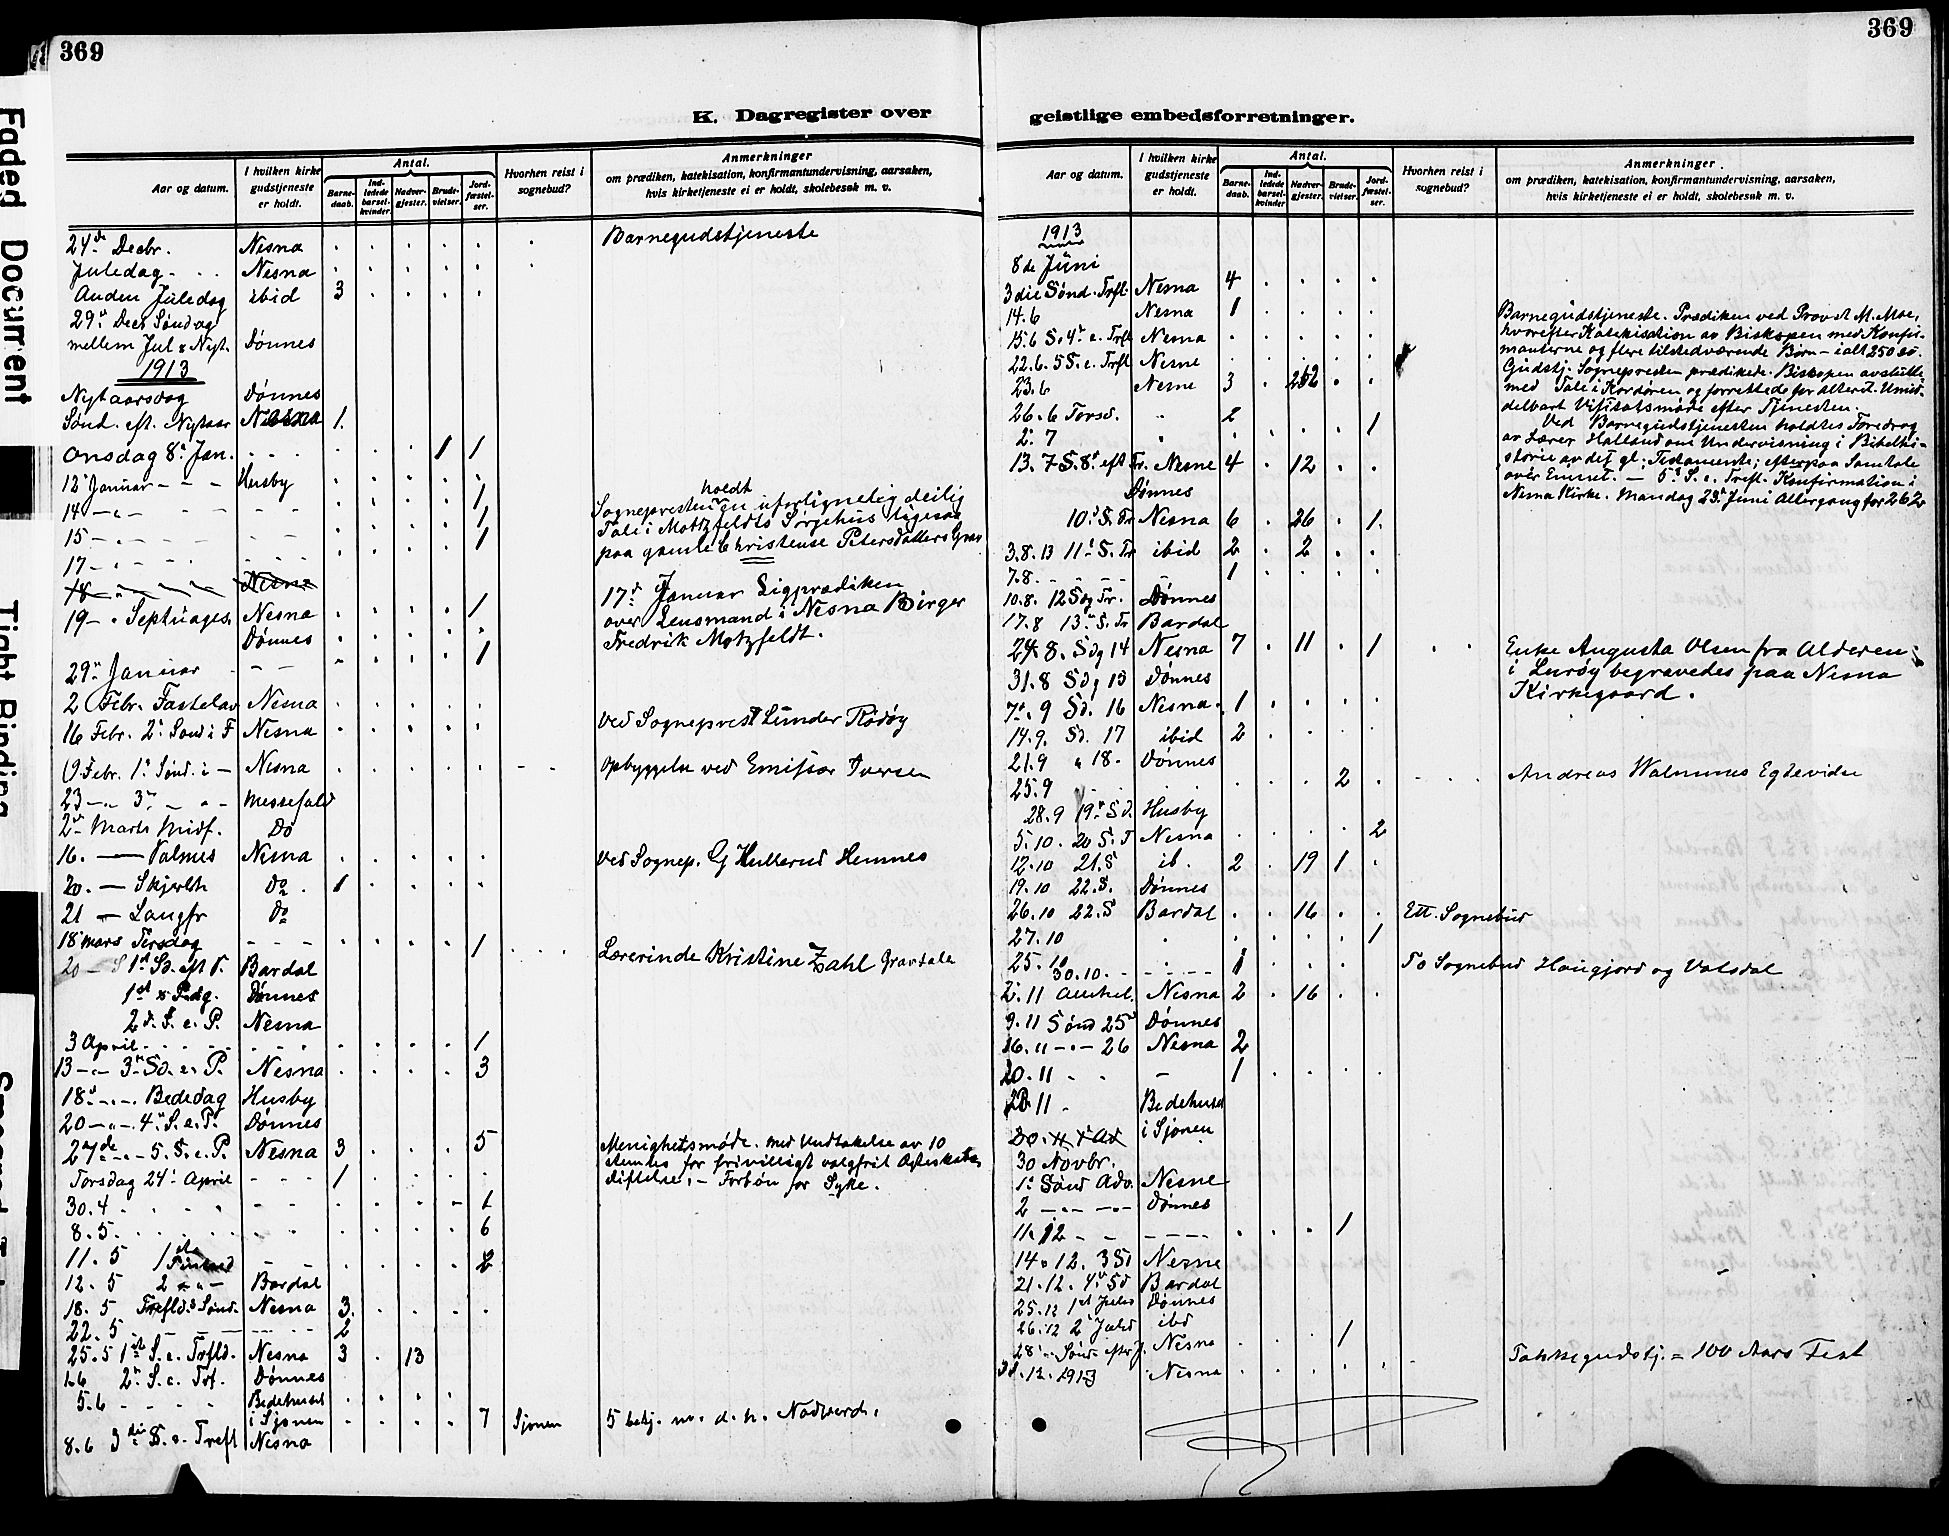 369
K. Dagregister over
Aar og datum.
I hvilken kirke gudstjeneste er holdt.
Antal.
Barnedaab.
Indledede barselkvinder.
Nadvergjester.
Brudevielser.
Jordfæstelser.
Hvorhen reist i sognebud?
Anmerkninger
om prædiken, katekisation, konfirmantundervisning, aarsaken,
hvis kirketjeneste ei er holdt, skolebesøk m. v.
24de Decbr. Nesna Barnegudstjeneste
Juledag Nesna
Anden Juledag ibid 3
29. Decb Søndag
mellem Jul & Nyt. Dønnes
1913
Nytaarsdag Dønnes
Sønd. eft. Nytaar Nesna 1.
Onsdag 8. Jan. 1 1
12 Januar - - - Husby
14 - " - 1
15 - " - 1
17 - 1
18 - " - Nesna
19 - " Septuages. Nesna 1
Dønnes
29. Januar - - 1
holdt
Sognepresten en uforlignelig deilig
Tale i Motzfeldts Sørgehus ligesaa
paa gamle Christense Petersdatters Grav
17de Januar Ligprædiken
over Lensmand i Nesna Birger
Fredrik Motzfeldt.
2 Febr. Fastelav Nesna
16 Febr. 2. Sønd i F Nesna ved Sogneprest Lunder Rødøy
9 Febr. 1. Sønd. i - Nesna Opbyggelse ved Emissær Iversen
23 - " 3 - " - Messefald
2. Marts Midf. Do
16. — Palmes Nesna ved Sognep. G Hullerud Hemnes
20. — Skjærth Do. 1
21 — Langfr Do
18 mars Tirsdag - - - 1 Lærerinde Kristine Zahl Gravtale
20 - S 1st Sd. eft P. Bardal
1st & P.dg. Dønnes
2d. S. e. P. Nesna
3 April 1
13 - " - 3. Sd. e. P. Nesna 3
18. - " - Bededag Husby
20 - " - 4. S. e. P. Dønnes
27de - " - 5. S. e. P. Nesna 3 5
Menighetsmøde. med Undtakelse av 10
stemtes for frivilligt valgfrit
stiftelse. - Forbøn for Syke.
Torsdag 24. April - - - 1
30.4 1
8.5 6
11.5 1ste 2
12.5 2 - " - Bardal
18.5 Trefld.s Sønd. Nesna 3.
22.5 2
25.5 1st S. e. Trfld. Nesna 3 13
1.6 2. S. e. Trf. Dønnes
5.6 - - - Bedehuset
i Sjonen 7 Sjonen 5 betj. m. d. h. Nadverd.
8.6 3die S. e. Trefl Nesna
369
geistlige embedsforretninger.
Aar og datum.
I hvilken kirke gudstjeneste er holdt.
Antal.
Barnedaab.
Indledede barselkvinder
Nadvergjester.
Brudevielser.
Jordfæstelser.
Hvorhen reist i sognebud?
Anmerkninger
om prædiken, katekisation, konfirmantundervisning, aarsaken,
hvis kirketjeneste ei er holdt, skolebesøk m. v.
1913
8de Juni
3die Sønd. Trfl. Nesna 4
14.6 Nesna 1
15.6 S. 4. e. Trfl Nesna
22.6. 5 S. e. Trfl Nesna
23.6 Nesna 3 262
26.6 Torsd. " 2
2. 7 " 1
13. 7 S. 8. eft Tr. Nesna 4 12
Barnegudstjeneste. Prædiken ved Provst M. Moe,
hvorefter Katekisation av Biskopen med Konfir-
manterne og flere tilstedværende Børn - ialt 250
Gudstj. Sognepresten prædikede. Biskopen avsluttede
med Tale i Kordøren og forrettede for alteret. Umid-
delbart Visitatsmøde efter Tjenesten.
Ved Barnegudstjenesten holdtes Foredrag
av Lærer Halland om Undervisning i Bibelhi-
storie av det gl. Testamente; efterpaa Samtale
over Emnet. — 5. S. e. Trefl. Konfirmation i
Nesna Kirke. Mandag 23. Juni Altergang for 262
Dønnes
10. S. Tr Nesna 6 26 1.
3.8.13 11. S. Tr ibid 2 2
7.8. - - - - 1
10.8. 12 Sdg Tr. Dønnes
17.8 13. S. Tr Bardal
24.8. Sdg 14 Nesna 7 11 1
Enke Augusta Olsen fra Alderen
i Lurøy begravedes paa Nesna
Kirkegaard.
31.8 Sdg 15 Dønnes
7.9 Sd. 16 Nesna. 1
14.9. Sd. 17 ibid 2
21.9 " 18. Dønnes
25.9 2 Andreas
28.9 19. Sd. Husby
5.10. 20 S. T Nesna 2
12.10 21. S ib. 2 19 1
19.10 22. S. Dønnes
26.10 22. S Bardal 16 Ett. Sognebud
27.10 1
25.10
30.10. - - - - 1 To Sognebud Haugjord og Valsdal
2. 11 Nesna 2 16
9.11 Sønd 25 Dønnes
16. 11 - " - 26 Nesna 2
20.11 - 1
11 Bedehuset
i Sjonen
30 Novbr.
1. Sønd Adv. Nesna
2 - " - - " - Dønnes
11.12 - - - - 1
14. 12. 3 Sd Nesna
21.12. 4. Sd Bardal
25.12 1st Juled Dønnes
26.12 2 Juled ibd
28. - Sønd. efter J. Nesna 1
31.12.1913 Nesna Takkegudstj. = 100 Aars Fest
Faded Document
Tight Binding